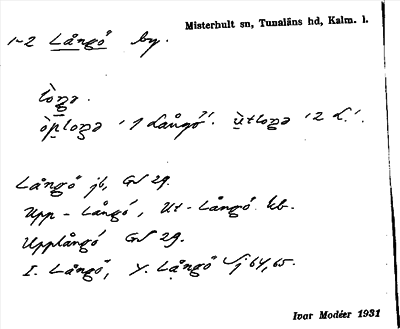 Misterhult sn, Tunaläns hd, Kalm. l.
1-2 Långö by.
lòŋə.
òp̱loŋə '1 Långö'. ùtloŋə '2 L.'.
Långö jb, GV 29.
Upp-Långö, Ut-Långö kb.
Upplångö GV 29.
I. Långö, Y. Långö Vj 64, 65.
Ivar Modéer 1931